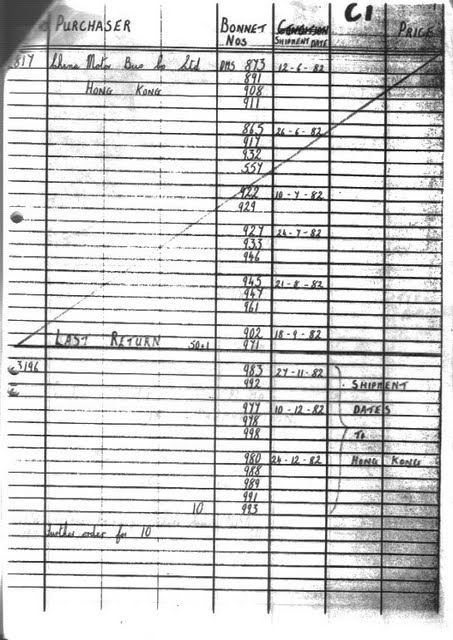 C1
PURCHASER BONNET NOS CONDITION SHIPMENT DATE PRICE
817 China Motor Bus Co Ltd DMS 873 12-6-82
HONG KONG 891
908
911
865 26-6-82
917
932
557
922 10-7-82
929
927 24-7-82
933
946
945 21-8-82
947
961
902 18-9-82
LAST RETURN 50+1 971
3196 983 27-11-82
992 SHIPMENT
977 10-12-82 DATES
978
998 TO
980 24-12-82 HONG KONG
988
989
991
10 993
Further order for 10